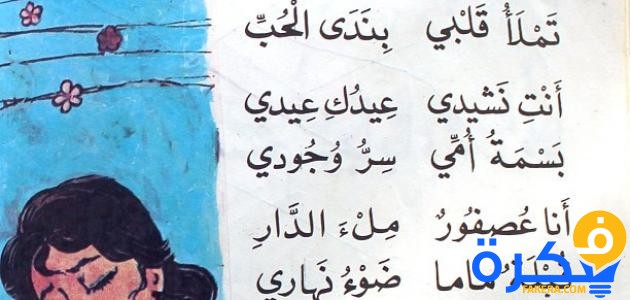 تَمْلَأُ قَلْبِي بِنَدَى الْحُبِّ
أَنْتِ نَشيدي عِيدُكِ عِيدي
بَسْمَةُ أُمِّي سِرُّ وُجُودي
أَنا عُصفُورٌ مِلْءَ الدَّارِ
قُبْلَةُ مَاما ضَوْءُ نَهاري
فكرة
FAKERA.COM